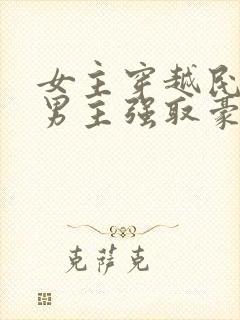 女主穿越民
男主强取豪
克萨克